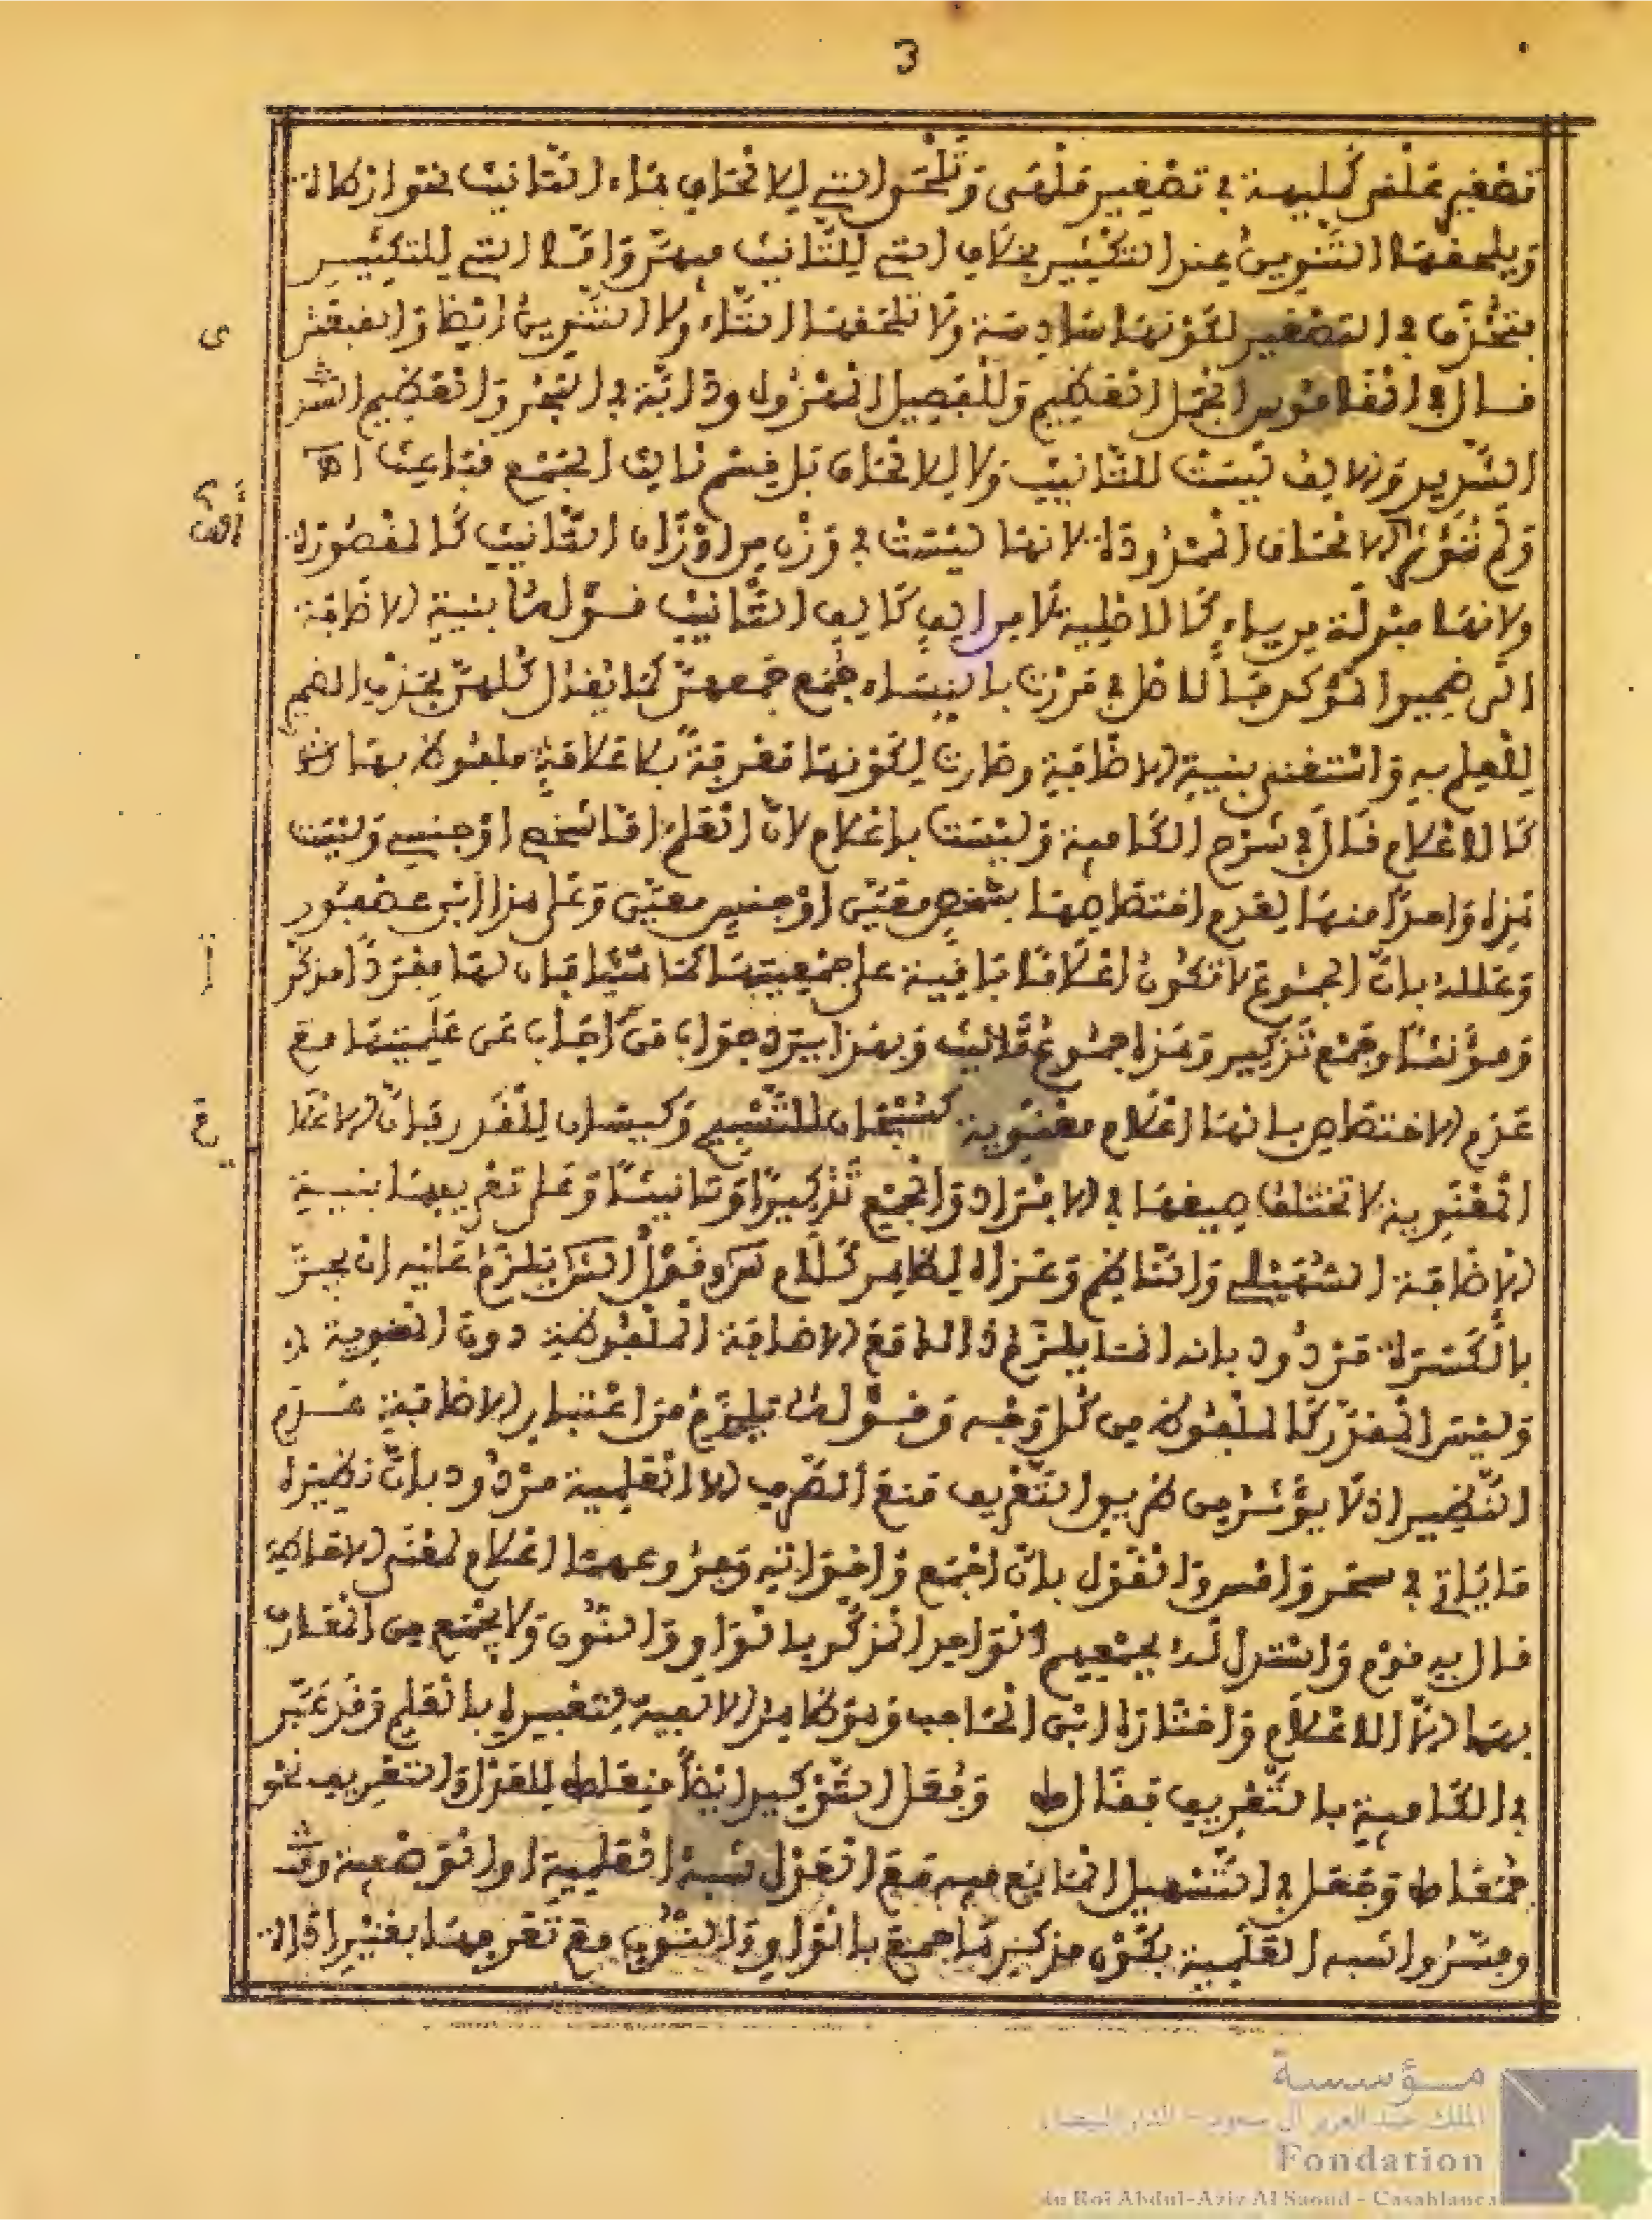 3
تصغير علقى كمليهة في تصغير ملهى وتلحق التي للالحاق هاء التانيث نحو ارطاة
ويلحقها التنوين عند التكثير بخلاف التي للتانيث فيهن واما التي للتكثير
فتحذف في التصغير لكونها سادسة ولا تلحقها التاء ولا التنوين ايضا والقبعثر
قال في القاموس الجمل العظيم والفصيل المهزول ودابة في البحر والعظيم الشد
الشديد والالف ليست للتانيث ولا للالحاق بل قسم ثالث الجمع قباعث اه
ولم تؤثر الالحاق الممدودة لانها ليست في وزن من اوزان التانيث كالمقصورة
ولانها مبدلة من ياء كالاصلية لا من الف كالف التانيث قوله بنية الاضافة
الى ضمير المؤكد فالاصل في مررت بالنساء جمع جمعهن كما يقال كلهن بحذف الضمير
للعلم به واستغنى بنية الاضافة وصارت لكونها معرفة بلا علامة ملفوظ بها
كالاعلام قال في شرح الكافية وليست باعلام لان العلم اما شخصي او جنسي وليست
هذه واحدا منها لعدم اختصاصها بشخص معين او جنس معين وعلى هذا ابن عصفور
وعلله بان الجموع لا تكون اعلاما باقية على جمعيتها كما سياتي فان لها مفردا مذكر
ومؤنثا وجمع تذكير وهذه جموع مؤنث وبهذا يرد جواب من اجاب عن علميتها مع
عدم الاختصاص بانها اعلام معنوية كسبحان للتسبيح وكيسان للغدر فان الاعلا
المعنوية لا تختلف صيغها في الافراد والجمع تذكيرا وتانيثا وعلى تعريفها بنية
الاضافة السهيلي والناظم وعزاه لظاهر كلام س وقول ابن يلزم عليه ان يجر
بالكسرة مردود بانه انما يلزم ذلك مع الاضافة الملفوظة دون المنوية
وليس المقدر كالملفوظ من كل وجه وقوله يلزم من اعتبار الاضافة عدم
النظير اذ لا يؤثر من ضروب التعريف منع الصرف الا العلمية مردود بان نظيره
ما ياتي في سحر وامس والقول بان اجمع واخواته وفروعها اعلام لمعنى الاحاطة
قال به قوم واستدل له بجمعهم الواحد المذكر بالواو والنون ولا يجمع من المعارف
بهما الا الاعلام واختاره ابن الحاجب وهو ظاهر الالفية لتعبيره بالعلم وقد عبر
في الكافية بالتعريف فقال ط وفعل التوكيد ايضا منعا ط للعدل والتعريف نحو
جمعا ط وجعل في التسهيل المانع فيه مع العدل شبه العلمية او الوصفية وقد
وفسروا شبه العلمية بكون مذكرها جمع بالواو والنون مع تعريفها بغير اداة
مؤسسة
الملك عبد العزيز آل سعود - الدار البيضاء
Fondation
du Roi Abdul-Aziz Al Saoud - Casablanca